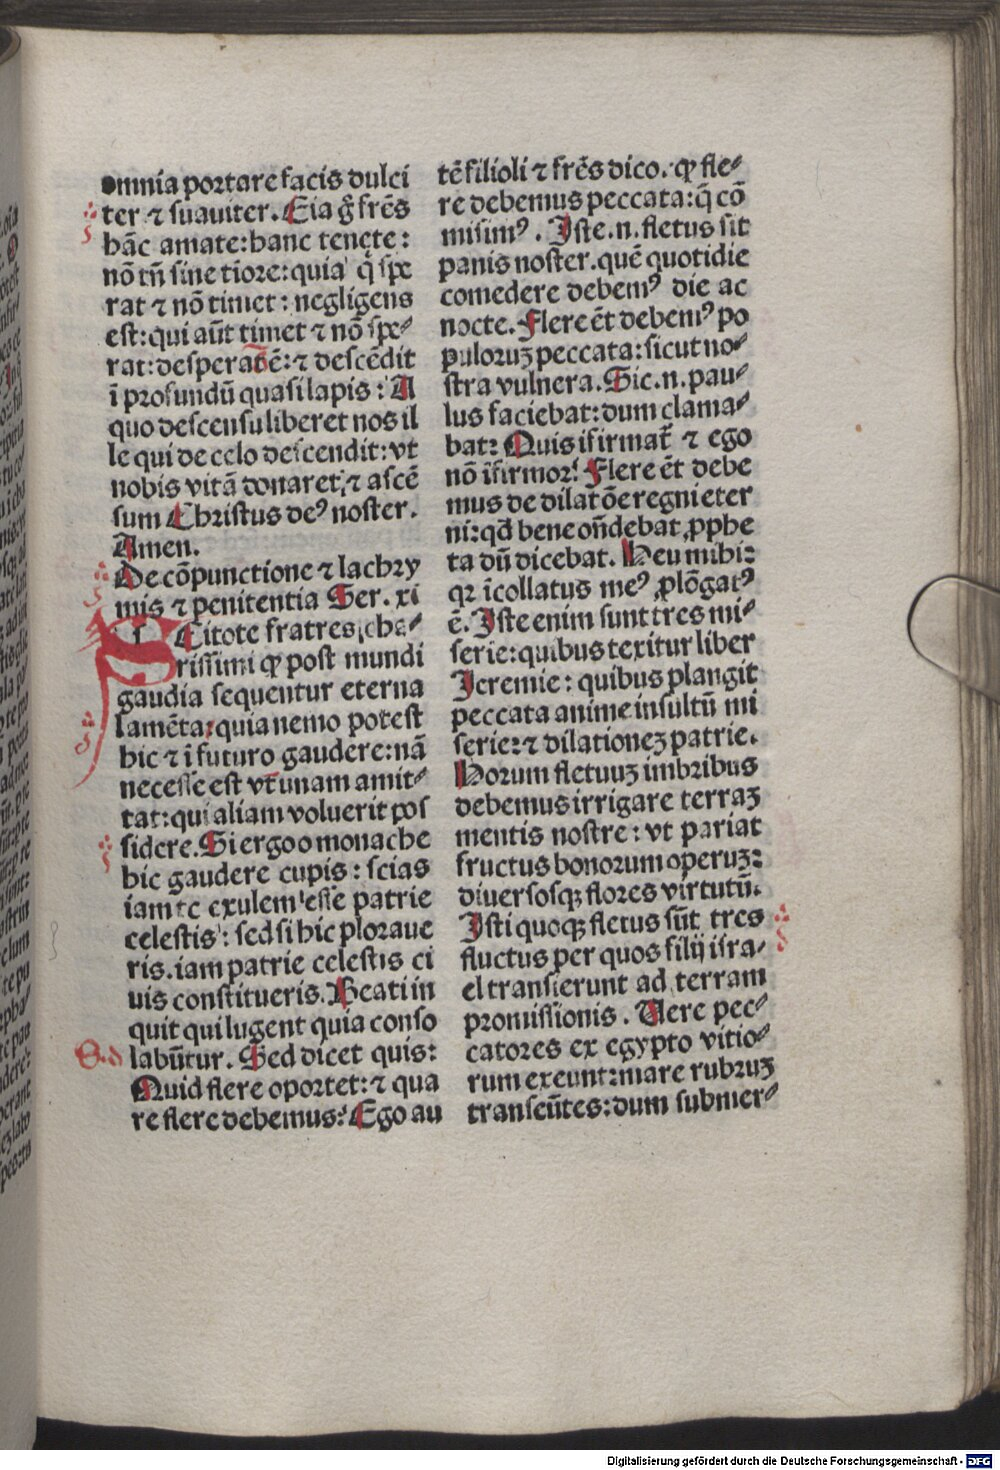 omnia portare facis dulci
ter ⁊ suauiter. Eia g̃ frēs
hāc amate: hanc tenete:
nō tñ sine tiore: quia q̇ spe
rat ⁊ nō timet: negligens
est: qui aũt timet ⁊ nō spe⸗
rat: desperatē: ⁊ descēdit
ī profundū quasi lapis: A
quo descensu liberet nos il
le qui de celo descendit: vt
nobis vitā donaret, ⁊ ascē
sum Christus deꝰ noster.
Amen.
De cōpunctione ⁊ lachry
mis ⁊ penitentia Ser. xi
SCitote fratres cha⸗
rissimi ꝙ post mundi
gaudia sequentur eterna
lamēta: quia nemo potest
hic ⁊ ī futuro gaudere: nā
necesse est vt unam amit⸗
tat: qui aliam voluerit pos
sidere. Si ergo o monache
hic gaudere cupis: scias
iam te exulem esse patrie
celestis: sed si hic ploraue
ris. iam patrie celestis ci
uis constitueris. Beati in
quit qui lugent quia conso
labūtur. Sed dicet quis:
Quid flere oportet: ⁊ qua
re flere debemus: Ego au
tē filioli ⁊ frēs dico. ꝙ fle⸗
re debemus peccata: q̄ cō
misimꝰ. Iste .n. fletus sit
panis noster. quē quotidie
comedere debemꝰ die ac
nocte. Flere ēt debemꝰ po
puloruꝫ peccata: sicut no⸗
stra vulnera. Sic .n. pau⸗
lus faciebat: dum clama⸗
bat: Quis ifirmat̄ ⁊ ego
nō īfirmor: Flere ēt debe
mus de dilatōe regni eter
ni: qd̄ bene oñdebat ꝓphe
ta dū dicebat. Heu mihi:
qꝛ īcollatus meꝰ ꝓlōgatꝰ
ē. Iste enim sunt tres mi⸗
serie: quibus texitur liber
Ieremie: quibus plangit
peccata anime insultū mi
serie: ⁊ dilationeꝫ patrie.
Horum fletuuꝫ imbribus
debemus irrigare terraꝫ
mentis nostre: vt pariat
fructus bonorum operuꝫ:
diuersosqꝫ flores virtutū.
Isti quoqꝫ fletus sūt tres
fluctus per quos filij isra⸗
el transierunt ad terram
promissionis. Uere pec⸗
catores ex egypto vitio⸗
rum exeunt: mare rubruꝫ
transeūtes: dum submer⸗
Digitalisierung gefördert durch die Deutsche Forschungsgemeinschaft - DFG